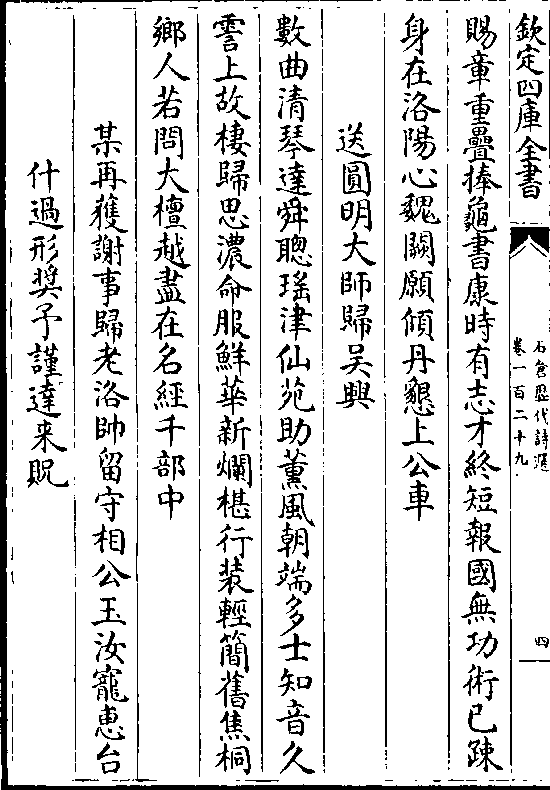 欽定四庫全書
石倉歷代詩選
卷一百二十九
四
賜章重疊捧龜書康時有志才終短報國無功術已踈
身在洛陽心魏闕願傾丹懇上公車
送圓明大師歸吳興
數曲清琴達舜聰瑶津仙苑助薫風朝端多士知音久
霅上故棲歸思濃命服鮮華新爛椹行装輕簡舊焦桐
鄉人若問大檀越盡在名經千部中
某再獲謝事歸老洛帥留守相公玉汝寵恵台
什過形奨予謹達来貺